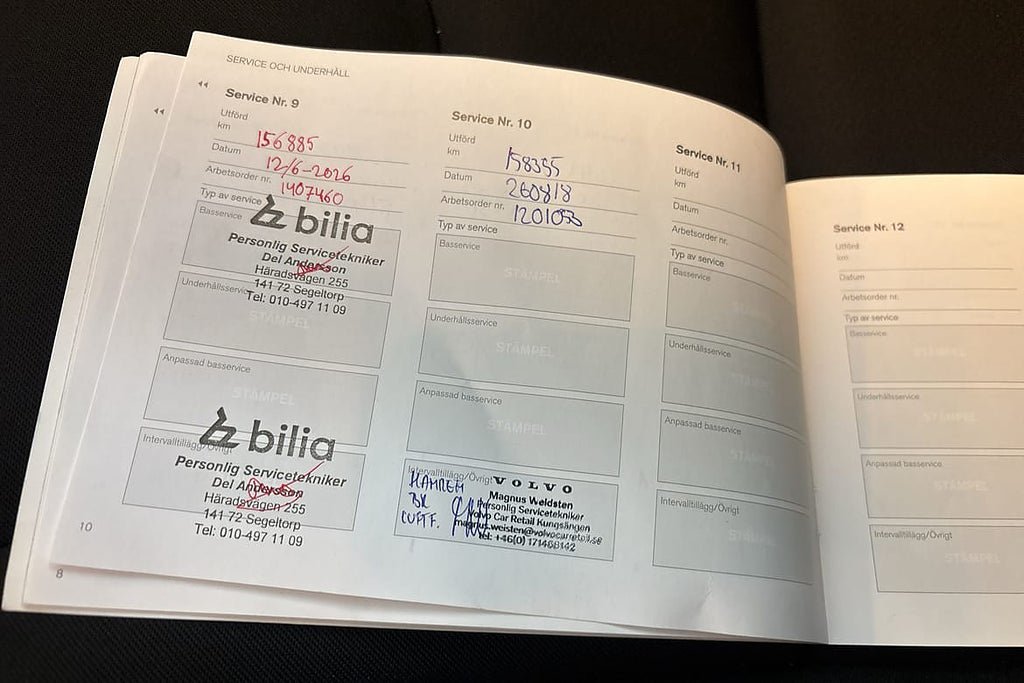 SERVICE OCH UNDERHÅLL
Service Nr. 9
Utförd
km
156885
Datum
12/6-2026
Arbetsorder nr.
1407460
Typ av service
Basservice
bilia
Personlig Servicetekniker
Del Andersson
Häradsvägen 255
141 72 Segeltorp
Tel: 010-497 11 09
Underhållsservice
STÄMPEL
Anpassad basservice
STÄMPEL
Intervalltillägg/Övrigt
bilia
Personlig Servicetekniker
Del Andersson
Häradsvägen 255
141 72 Segeltorp
Tel: 010-497 11 09
10
8
Service Nr. 10
Utförd
km
158355
Datum
260818
Arbetsorder nr.
Typ av service
Basservice
STÄMPEL
Underhållsservice
STÄMPEL
Anpassad basservice
STÄMPEL
Intervalltillägg/Övrigt
VOLVO
Magnus Weldsten
Personlig Servicetekniker
Volvo Car Retail Kungsängen
magnus.weisten@volvocarretail.se
Tel: +46(0) 171468142
BK
LUFTF.
Service Nr. 11
Utförd
km
Datum
Arbetsorder nr.
Typ av service
Basservice
STÄMPEL
Underhållsservice
STÄMPEL
Anpassad basservice
STÄMPEL
Intervalltillägg/Övrigt
STÄMPEL
Service Nr. 12
Utförd
km
Datum
Arbetsorder nr.
Typ av service
Basservice
STÄMPEL
Underhållsservice
STÄMPEL
Anpassad basservice
STÄMPEL
Intervalltillägg/Övrigt
STÄMPEL